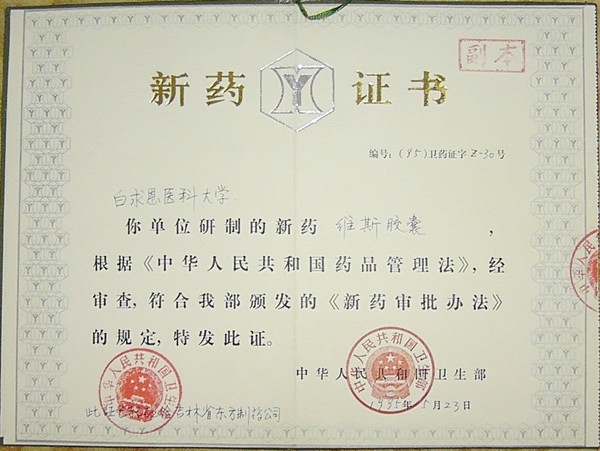 副本
新药 证书
编号：(95)卫药证字Z-30号
白求恩医科大学
你单位研制的新药 维斯胶囊，
根据《中华人民共和国药品管理法》，经
审查，符合我部颁发的《新药审批办法》
的规定，特发此证。
中华人民共和国卫生部
中华人民共和国卫生部
中华人民共和国卫生部
1995年5月23日
吉林省东方制药公司
中华人民共和国卫生部